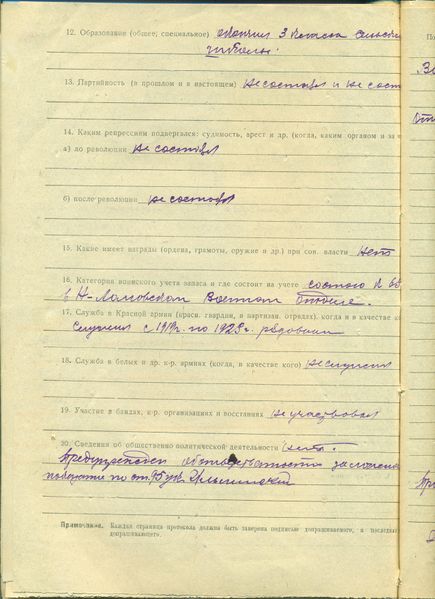 12. Образование (общее, специальное) окончил 3 класса сельской
школы.
13. Партийность (в прошлом и в настоящем) не состоял и не сост
14. Каким репрессиям подвергался: судимость, арест и др. (когда, каким органом и за ч
а) до революции не состоял
б) после революции не состоял
15. Какие имеет награды (ордена, грамоты, оружие и др.) при сов. власти нет
16. Категория воинского учета запаса и где состоит на учете состою
в Н-Ломовском военном
17. Служба в Красной армии (красн. гвардии, в партизан. отрядах), когда и в качестве к
Служил с 1919г. по 1923г. рядовым
18. Служба в белых и др. к.-р. армиях (когда, в качестве кого) не служил
19. Участие в бандах, к.-р. организациях и восстаниях не участвовал
20. Сведения об общественно-политической деятельности нет.
Предупрежден об ответственности за ложные
по ст. 95 ук
Примечание. Каждая страница протокола должна быть заверена подписью допрашиваемого, а последняя
допрашивающего.
По